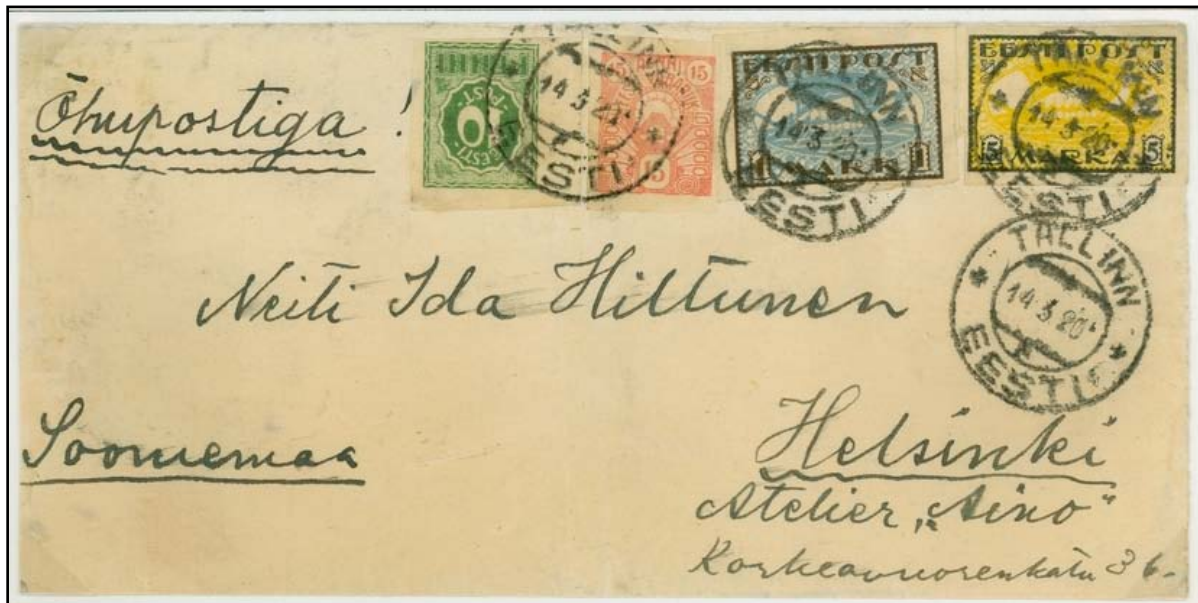 Õhupostiga!
EESTI POST
10
15 15
15
EESTI POST
1 MARK 1
EESTI POST
5 MARKA 5
TALLINN
14 3 20
EESTI
TALLINN
14 3 20
EESTI
TALLINN
14 3 20
EESTI
TALLINN
14 3 20
EESTI
Neiti Ida Hiltunen
Soomemaa
Helsinki
Atelier „Aino“
Korkeavuorenkatu 36.